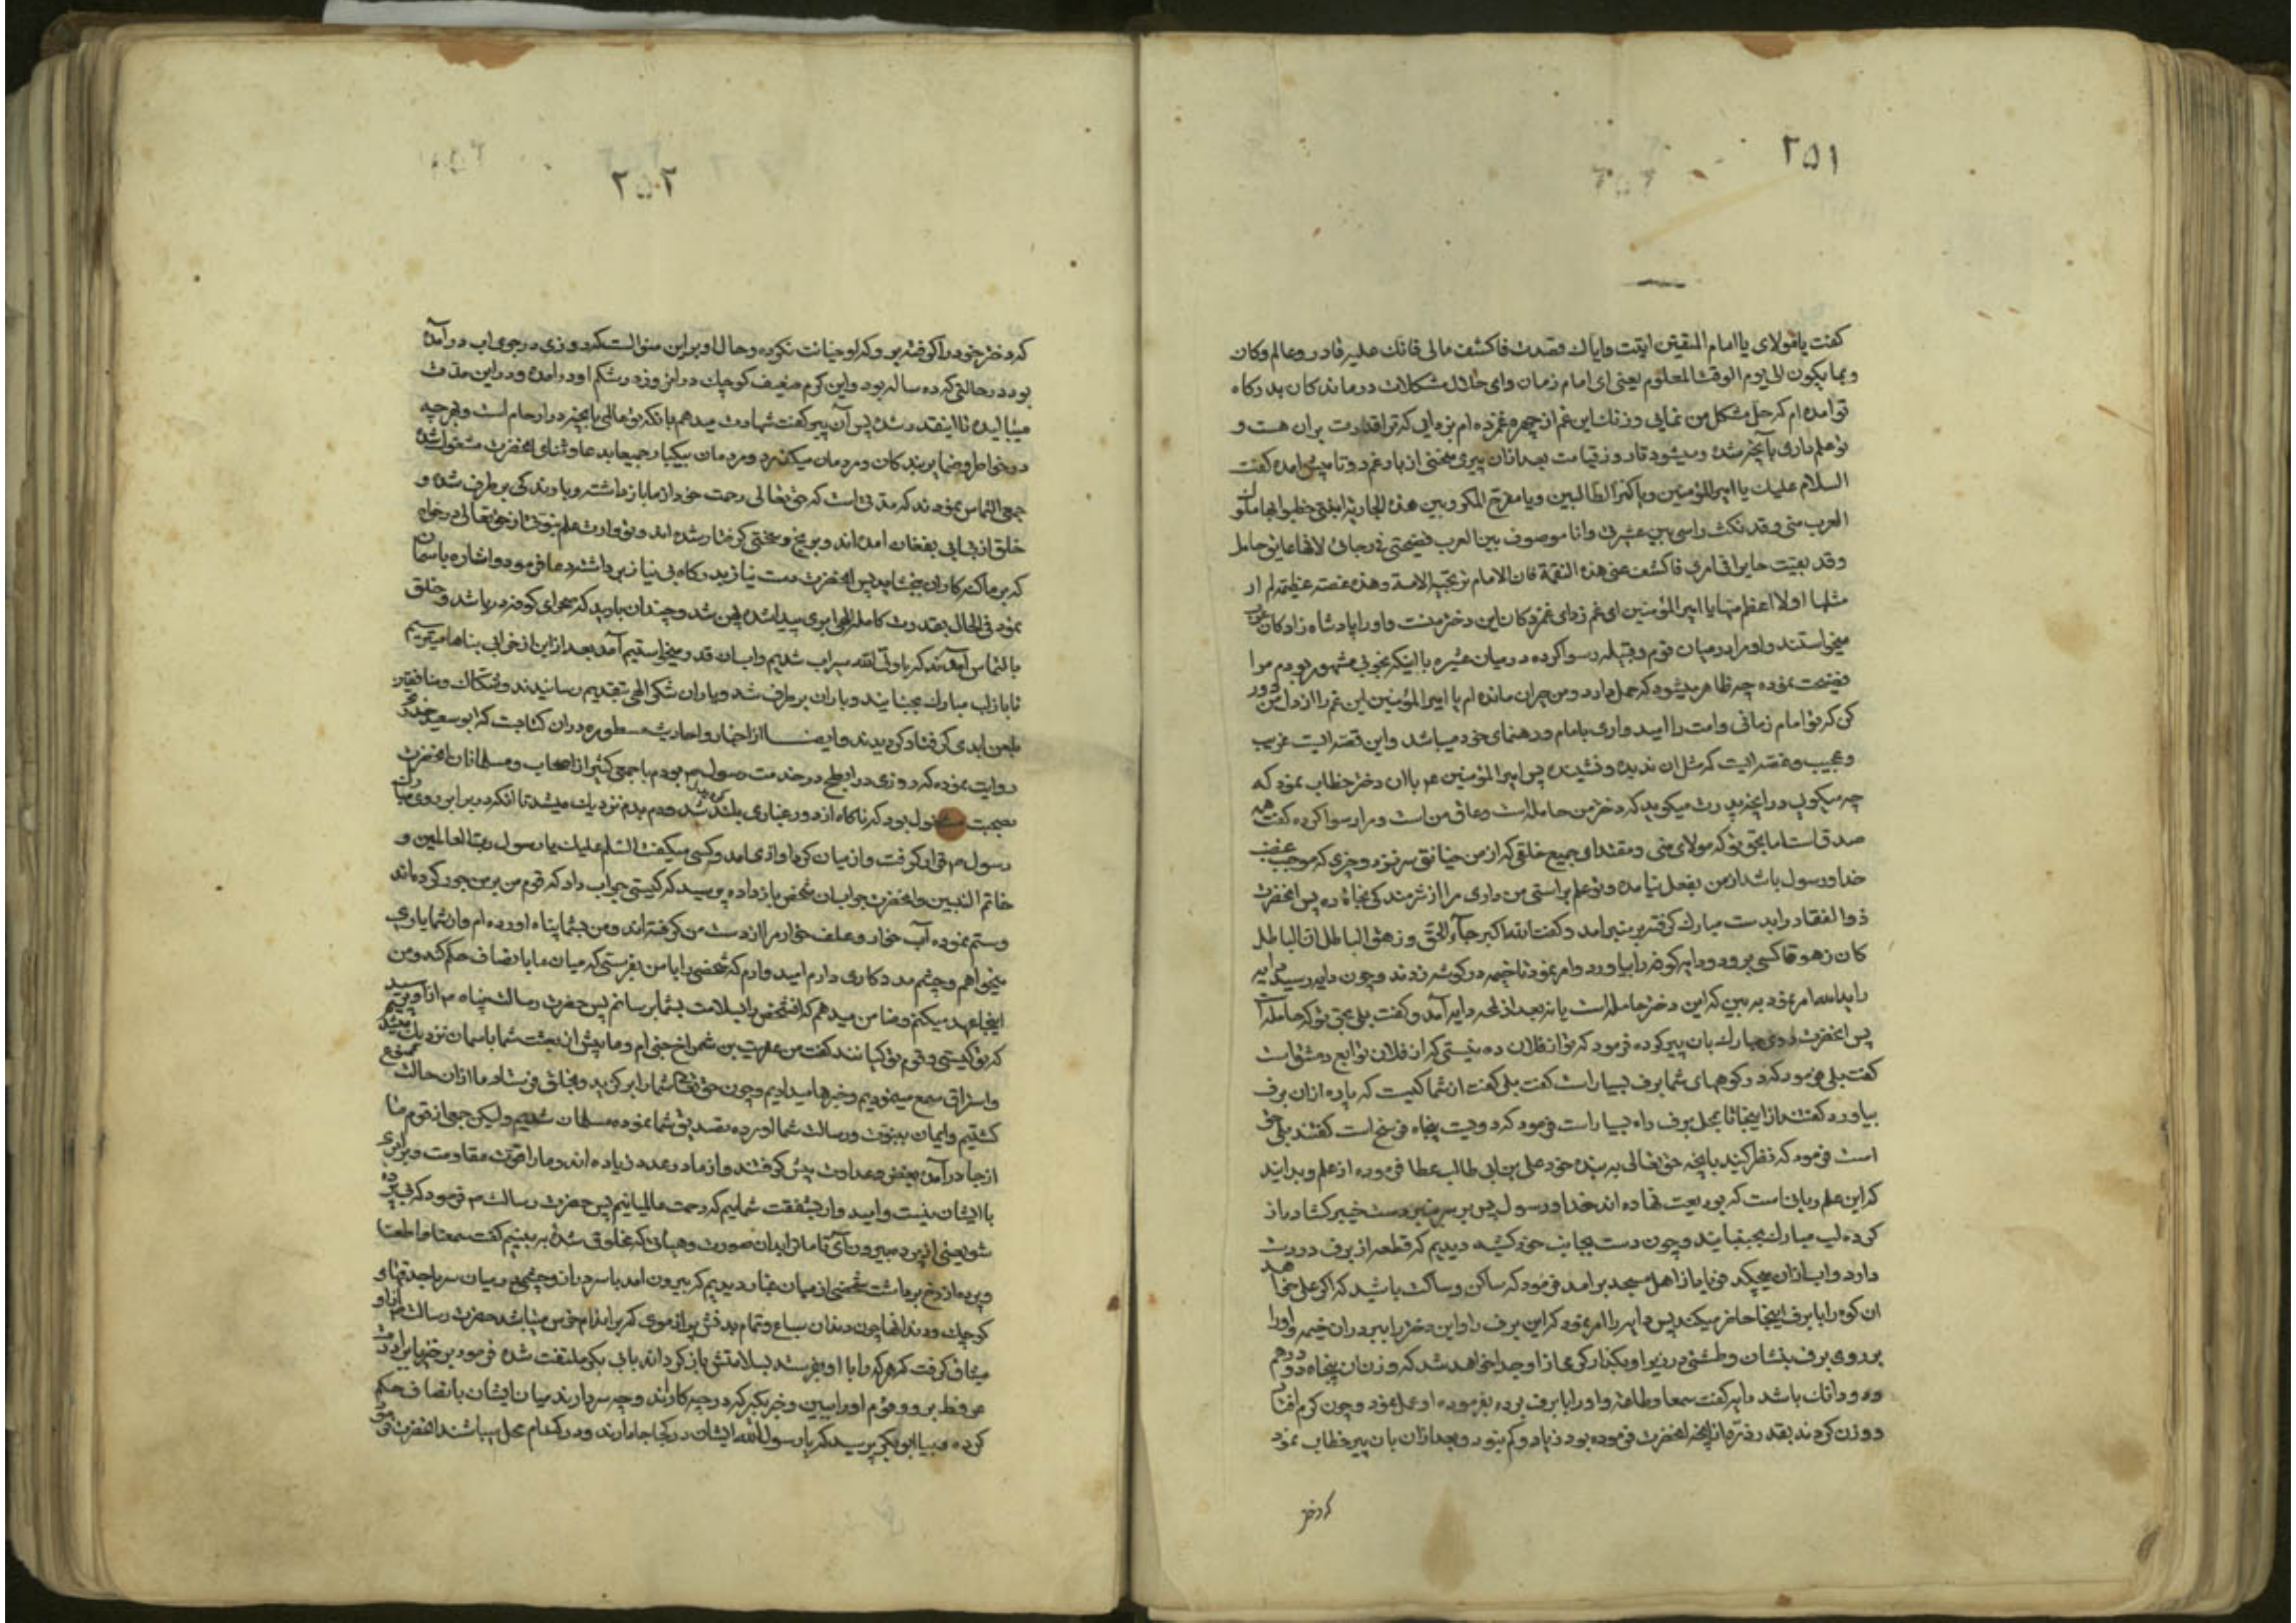 ۲۵۱
گفت یا مولای یا امام المتقین اتیت وایاك قصدت فاکشف مالی فانك علیه قادر وعالم وکان
وبما یکون الی یوم الوقت المعلوم یعنی ای امام زمان وای حلال مشکلات درماندکان بدرکاه
تو امده ام که حل مشکل من نمایی وزنك این غم از چهره غمزده ام بزدایی که ترا قدرت بران هست و
تو علم داری بآنچه شده ومیشود تا روز قیامت بعد ازان پیری منحنی از بار غم دوتا پیش امده گفت
السلام علیك یا امیرالمؤمنین ویا کنز الطالبین ویا مفرج المکروبین هذه الجاریة ابنتی خطبوا بها ملوك
العرب منی وقد نکث راسی بین عشیرتی وانا موصوف بین العرب فضحتی فی رجالی لانها عاتق حامل
وقد بقیت حایرا فی امری فاکشف عنی هذه النقمة فان الامام ترتجیه الامة وهذه غصة عظیمة لم ار
مثلها اولا اعظم منها یا امیرالمؤمنین ای غم زدای غمزدکان این دختر منست واورا پادشاه زادکان عرب
میخواستند واو مرا در میان قوم وقبیله رسوا کرده در میان عشیره با اینکه بخوبی مشهور بودم مرا
فضیحت نموده چه ظاهر میشود که حمل دارد ومن حیران مانده ام یا امیرالمؤمنین این غم را از دل من دور
کن که تو امام زمانی وامت را امیدواری بامام ورهنمای خود میباشد واین قصه ایست غریب
وعجیب وغصه ایست که مثل ان ندیده ونشنیده پس امیرالمؤمنین ع باان دختر خطاب نمود که
چه میکویی در انچه پدرت میکوید که دختر من حامله است وعاق من است ومرا رسوا کرده گفت همه
صدق است اما بحق تو که مولای منی ومقتدای جمیع خلقی که از من خیانتی سر نزده وچیزی که موجب غضب
خدا ورسول باشد از من بفعل نیامده وتو علم براستی من داری مرا از شرمندکی نجات ده پس انحضرت
ذوالفقار را بدست مبارك کرفته بر منبر امد وگفت الله اکبر جآء الحق وزهق الباطل ان الباطل
کان زهوقا کسی برود ودایه کوفه را بیاورد وامر نمود تا خیمه در کوشه زدند وچون دایه رسید دایه
را بدانجا امر نمود به بین که این دختر حامله است یا نه بعد از لمحه دایه آمد وگفت بلی بحق تو که حامله است
پس انحضرت روی مبارك بان پیر کوده فرمود که تو از فلان ده نیستی که از فلان توابع دمشق است
گفت بلی فرمود که در کوههای شما برف بسیار است گفت بلی گفت از شما کیست که پاره ازان برف
بیاورد گفتند از اینجا تا بمحل برف راه بسیار است فرمود که دویست پنجاه فرسخ است گفتند بلی حق
است فرمود که نظر کنید بانچه حق تعالی به بنده خود علی بن ابی طالب عطا فرموده از علم وبدانید
که این علم ربانی است که بودیعت نهاده اند خدا ورسول پس بر سر منبر دست خیبر کشا دراز
کرده لب مبارك بجنبانید وچون دست بجانب خود کشید دیدیم که قطعه از برف در دست
دارد واب ازان میچکید فریاد از اهل مسجد برامد فرمود که ساکن وساکت باشید که اکر علی خواهد
ان کوه را با برف اینجا حاضر میکند پس دایه را امر نمود که این برف را واین دختر را ببر دران خیمه واورا
بر روی برف بنشان وطشتی در زیر او بکذار کرمی از او جدا خواهد شد که وزن ان پنجاه ودو درهم
ودو دانك باشد دایه گفت سمعا وطاعة واورا با برف برده بفرموده او عمل نمود وچون کرم افتاد
ووزن کردند بقدر ذره از انچه انحضرت فرموده بود زیاد وکم نبود وبعد ازان بان پیر خطاب نمود
که دختر
۲۵۲
که دختر خود را کرفته برو که او خیانت نکرده وحال او بر این منوالست که روزی در جوی اب درآمده
بود در حالتی که ده ساله بود واین کرم ضعیف کوچك دران روز در شکم او درامده ودر این مدت
میبالیده تا اینقدر شده پس آن پیر گفت شهادت میدهم بانکه تو عالمی بانچه در ارحام است وهرچه
در خواطر وضمایر بندکان ومردمان میکذرد ومردمان بیکبار جمیعا بدعا وثنای انحضرت مشغول شده
جمعی التماس نمودند که مدتی است که حق تعالی رحمت خود از ما باز داشته وبارندکی برطرف شده و
خلق از بی ابی بفغان امده اند وبرنج وسختی کرفتار شده اند وتو وارث علم نبوتی از حق تعالی درخواه
که بر ما کنه کاران ببخشاید پس انحضرت دست نیاز بدرکاه بی نیاز برداشته دعا فرمود واشاره باسمان
نمود فی الحال بقدرت کامله الهی ابری پیدا شده پهن شد وچندان بارید که صحرای کوفه دریا شد وخلق
بالتماس آمدند که یا ولی الله سیراب شدیم واب ان قدر میخواستیم آمد بعد از این از خرابی بناها میترسیم
تا باز لب مبارك بجنبانید وباران برطرف شد ویاران شکر الهی بتقدیم رسانیدند وشکاك ومنافقین
بلعن ابدی کرفتار کردیدند وایضا از اخبار واحادیث مسطوره دران کتابت که ابو سعید خدری
روایت نموده که روزی در ابطح در خدمت رسول ص بودم با جمعی کثیر از اصحاب ومسلمانان انحضرت
بصحبت مشغول بود که ناکاه از دور غباری بلند شد ودم بدم نزدیك میشد تا انکه در برابر روی مبارك
رسول ص قرار کرفت واز میان کرد اوازی امد وکسی میگفت السلم علیك یا رسول رب العالمین و
خاتم النبیین وانحضرت جواب ان شخص باز داده پرسید که کیستی جواب داد که قوم من بر من جور کرده اند
وستم نموده آب خوار وعلف خوار مرا از دست من کرفته اند ومن بشما پناه اورده ام واز شما یاری
میخواهم وچشم مددکاری دارم امیدوارم که شخصی را با من بفرستی که میان ما بانصاف حکم کند ومن
اینجا عهد میکنم وضامن میدهم که انشخص را بسلامت بشما برسانم پس حضرت رسالت پناه ص از او پرسید
که تو کیستی وقوم تو کیانند گفت من عرفطه بن شمراخ جنی ام وما پیش از بعثت شما باسمان نزدیك میشدیم
واستراق سمع مینمودیم وخبرها میدادیم وچون حق تعالی شما را برکزید وبخلق فرستاد ما ازان حالت ممنوع
کشتیم وایمان بنبوت ورسالت شما اورده تصدیق شما نموده مسلمان شدیم ولیکن جمعی از قوم ما
از جا درآمده ببغض وعداوت پیش کرفتند واز ما در عدد زیاده اند وما را قوت مقاومت وبرابری
با ایشان نیست وامیدوار بشفقت شمائیم که رحمت عالمیانیم پس حضرت رسالت ص فرمود که بی پرده
شو یعنی از پرده بیرون آی تا ما ترا بدان صورت وهیاتی که مخلوق شده به بینیم گفت سمعا وطعا
وپرده از رخ برداشت شخصی از میان غبار دیدیم که بیرون امد با سر دراز وچشمی در میان سر با حدقهای
کوچك ودندانها چون دندان سباع وتمام بدنش پر از موی که بر اندام خرس میباشد حضرت رسالت ص از او
میثاق کرفت که هرکه را با او بفرستد بسلامتش باز کرداند بابی بکر ملتفت شده فرمود برخیز با برادرت
عرفطه برو وقوم اورا ببین وخبر بکیر که در چه کارند وچه سر دارند میان ایشان بانصاف حکم
کرده بیا ابو بکر پرسید که یا رسول الله ایشان در کجا جا دارند ودر کدام محل میباشند انحضرت فرمود